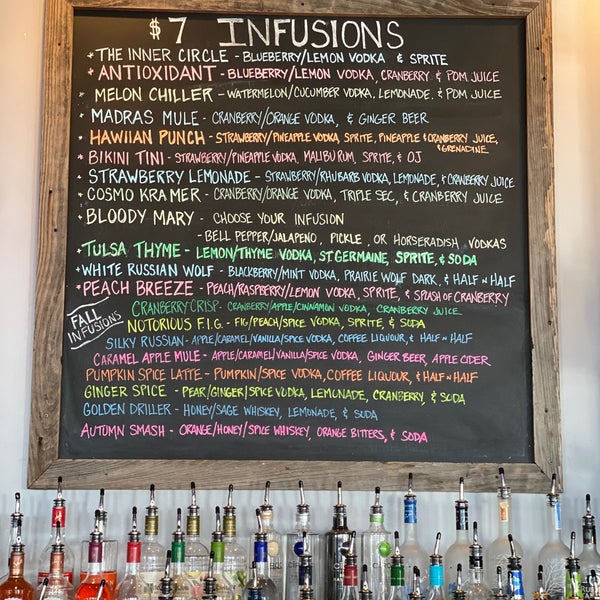 $7 INFUSIONS
* THE INNER CIRCLE - BLUEBERRY/LEMON VODKA & SPRITE
* ANTIOXIDANT - BLUEBERRY/LEMON VODKA, CRANBERRY & POM JUICE
* MELON CHILLER - WATERMELON/CUCUMBER VODKA, LEMONADE, & POM JUICE
* MADRAS MULE - CRANBERRY/ORANGE VODKA, & GINGER BEER
* HAWIIAN PUNCH - STRAWBERRY/PINEAPPLE VODKA, SPRITE, PINEAPPLE & CRANBERRY JUICE,
& GRENADINE
* BIKINI TINI - STRAWBERRY/PINEAPPLE VODKA, MALIBU RUM, SPRITE, & OJ
* STRAWBERRY LEMONADE - STRAWBERRY/RHUBARB VODKA, LEMONADE, & CRANBERRY JUICE
* COSMO KRAMER - CRANBERRY/ORANGE VODKA, TRIPLE SEC, & CRANBERRY JUICE
* BLOODY MARY - CHOOSE YOUR INFUSION
- BELL PEPPER/JALAPENO, PICKLE, OR HORSERADISH VODKAS
* TULSA THYME - LEMON/THYME VODKA, ST GERMAINE, SPRITE, & SODA
* WHITE RUSSIAN WOLF - BLACKBERRY/MINT VODKA, PRAIRIE WOLF DARK, & HALF N HALF
* PEACH BREEZE - PEACH/RASPBERRY/LEMON VODKA, SPRITE, & SPLASH OF CRANBERRY
FALL INFUSIONS
CRANBERRY CRISP - CRANBERRY/APPLE/CINNAMON VODKA, CRANBERRY JUICE
NOTORIOUS F.I.G. - FIG/PEACH/SPICE VODKA, SPRITE, & SODA
SILKY RUSSIAN - APPLE/CARAMEL/VANILLA/SPICE VODKA, COFFEE LIQUOUR, & HALF N HALF
CARAMEL APPLE MULE - APPLE/CARAMEL/VANILLA/SPICE VODKA, GINGER BEER, APPLE CIDER
PUMPKIN SPICE LATTE - PUMPKIN/SPICE VODKA, COFFEE LIQUOUR, & HALF N HALF
GINGER SPICE - PEAR/GINGER/SPICE VODKA, LEMONADE, CRANBERRY, & SODA
GOLDEN DRILLER - HONEY/SAGE WHISKEY, LEMONADE, & SODA
AUTUMN SMASH - ORANGE/HONEY/SPICE WHISKEY, ORANGE BITTERS, & SODA